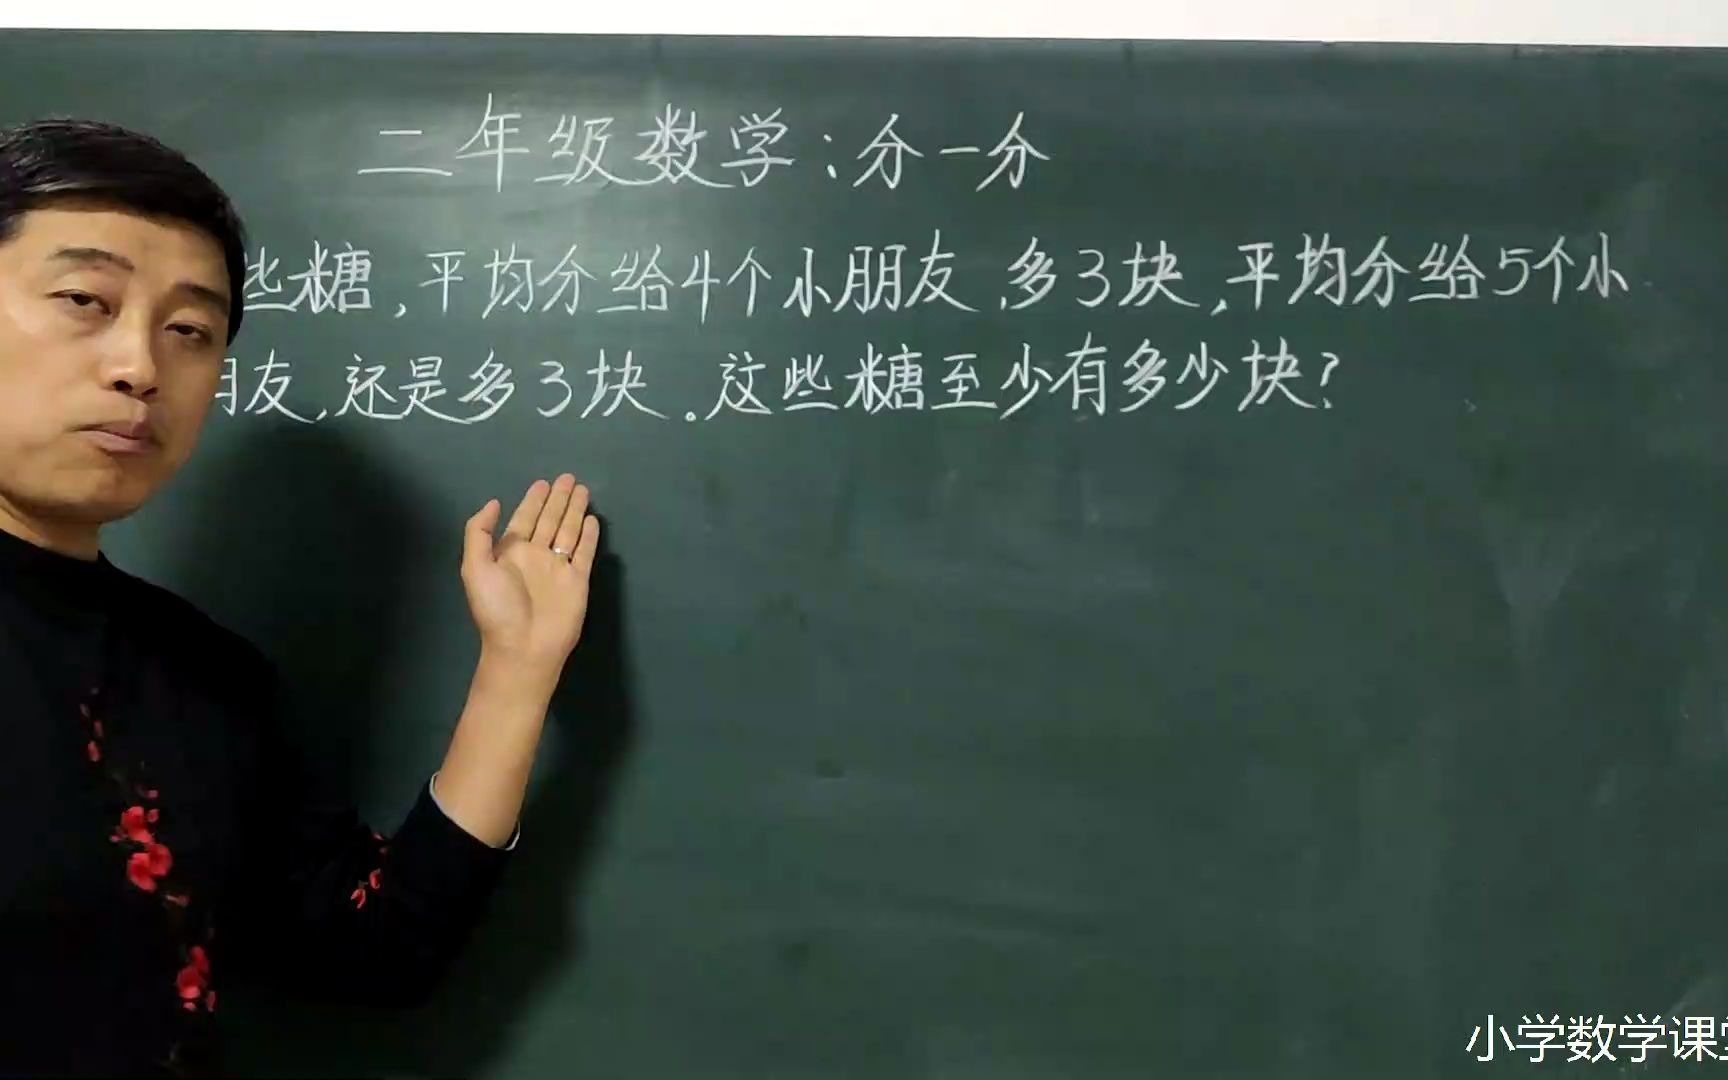 二年级数学：分一分
些糖，平均分给4个小朋友，多3块，平均分给5个小
朋友，还是多3块。这些糖至少有多少块？
小学数学课堂